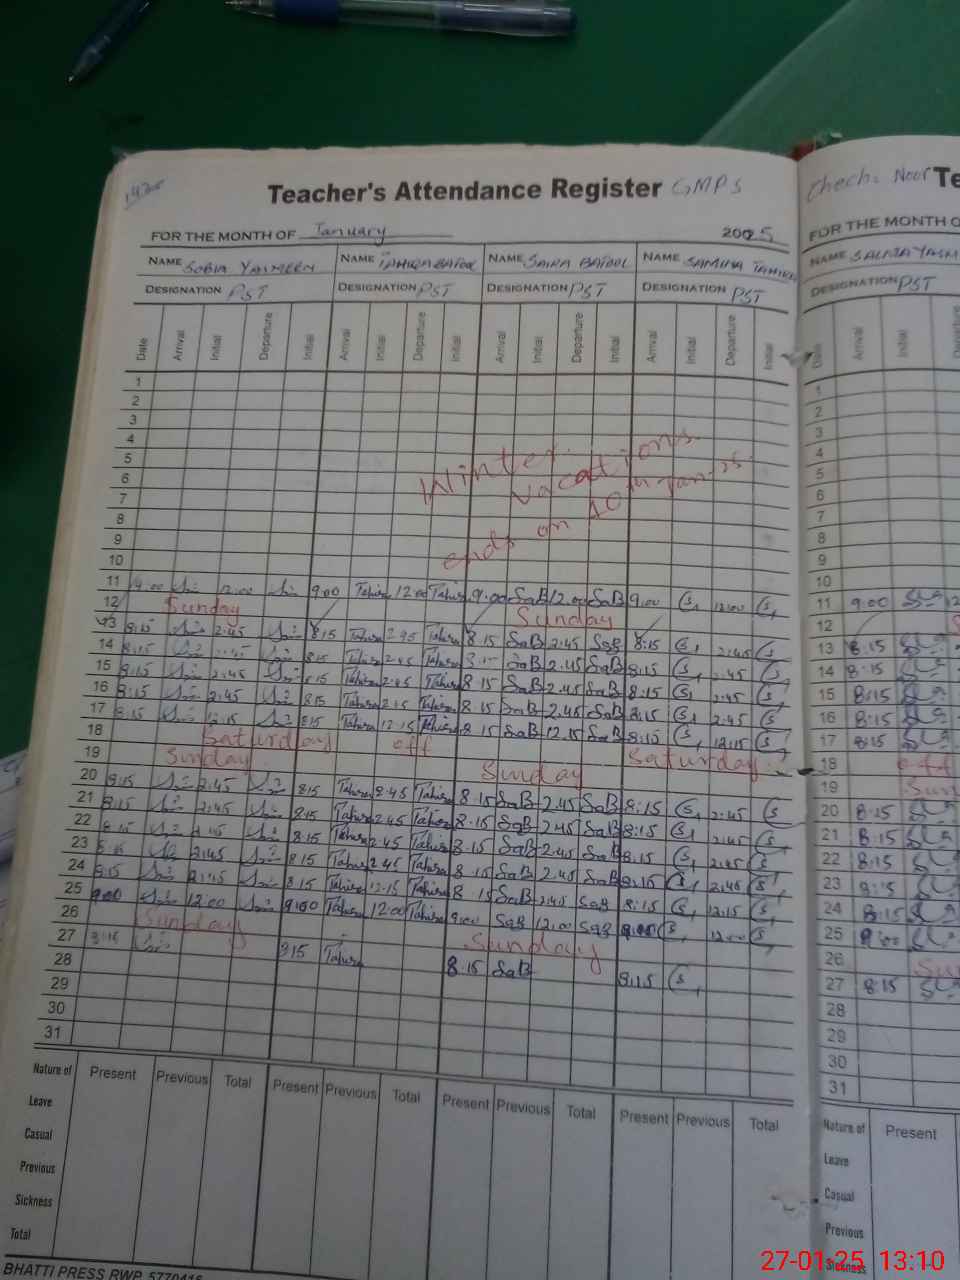 Teacher's Attendance Register GMPS
Chech. Noor Te
FOR THE MONTH OF January 2025
FOR THE MONTH O
NAME SOBIA YASMEEN NAME TAHIRA BATOOL NAME SAIRA BATOOL NAME SAMINA TAHIRA
NAME SALMA YASM
DESIGNATION PST DESIGNATION PST DESIGNATION PST DESIGNATION PST
DESIGNATION PST
Date Arrival Initial Departure Initial Arrival Initial Departure Initial Arrival Initial Departure Initial Arrival Initial Departure Initial
Date Arrival Initial Departure
1
2
3
4
5
6
7
8
9
10
Winter
vacations
ends on 10th Jan-25
11 9:00 12:00 9:00 Tahira 12:00 Tahira 9:00 SaB 12:00 SaB 9:00 12:00
12 Sunday Sunday
13 8:15 2:45 8:15 Tahira 2:45 Tahira 8:15 SaB 2:45 SaB 8:15 2:45
14 8:15 8:15 Tahira 2:45 Tahira SaB 2:45 SaB 8:15 2:45
15 8:15 2:45 8:15 Tahira 2:45 Tahira 8:15 SaB 2:45 SaB 8:15 2:45
16 8:15 2:45 8:15 Tahira 2:45 Tahira 8:15 SaB 2:45 SaB 8:15 2:45
17 8:15 12:15 8:15 Tahira 12:15 Tahira 8:15 SaB 12:15 SaB 8:15 12:15
18 Saturday off Saturday
19 Sunday Sunday
20 8:15 2:45 8:15 Tahira 2:45 Tahira 8:15 SaB 2:45 SaB 8:15 2:45
21 8:15 2:45 8:15 Tahira 2:45 Tahira 8:15 SaB 2:45 SaB 8:15 2:45
22 8:15 2:45 8:15 Tahira 2:45 Tahira 8:15 SaB 2:45 SaB 8:15 2:45
23 8:15 2:45 8:15 Tahira 2:45 Tahira 8:15 SaB 2:45 SaB 8:15 2:45
24 8:15 8:15 Tahira 12:15 Tahira 8:15 SaB 2:45 SaB 8:15 12:15
25 9:00 12:00 9:00 Tahira 12:00 Tahira 9:00 SaB 12:00 SaB 9:00 12:00
26 Sunday Sunday
27 8:15 8:15 Tahira 8:15 SaB 8:15
28
29
30
31
1
2
3
4
5
6
7
8
9
10
11 9:00
12
13 8:15
14 8:15
15 8:15
16 8:15
17 8:15
18 off
19 Sun
20 8:15
21 8:15
22 8:15
23 8:15
24 8:15
25 9:00
26 Su
27 8:15
28
29
30
31
Nature of Present Previous Total Present Previous Total Present Previous Total Present Previous Total
Leave
Casual
Previous
Sickness
Total
Nature of Present
Leave
Casual
Previous
Sickness
BHATTI PRESS RWP. 5770415
27-01-25 13:10